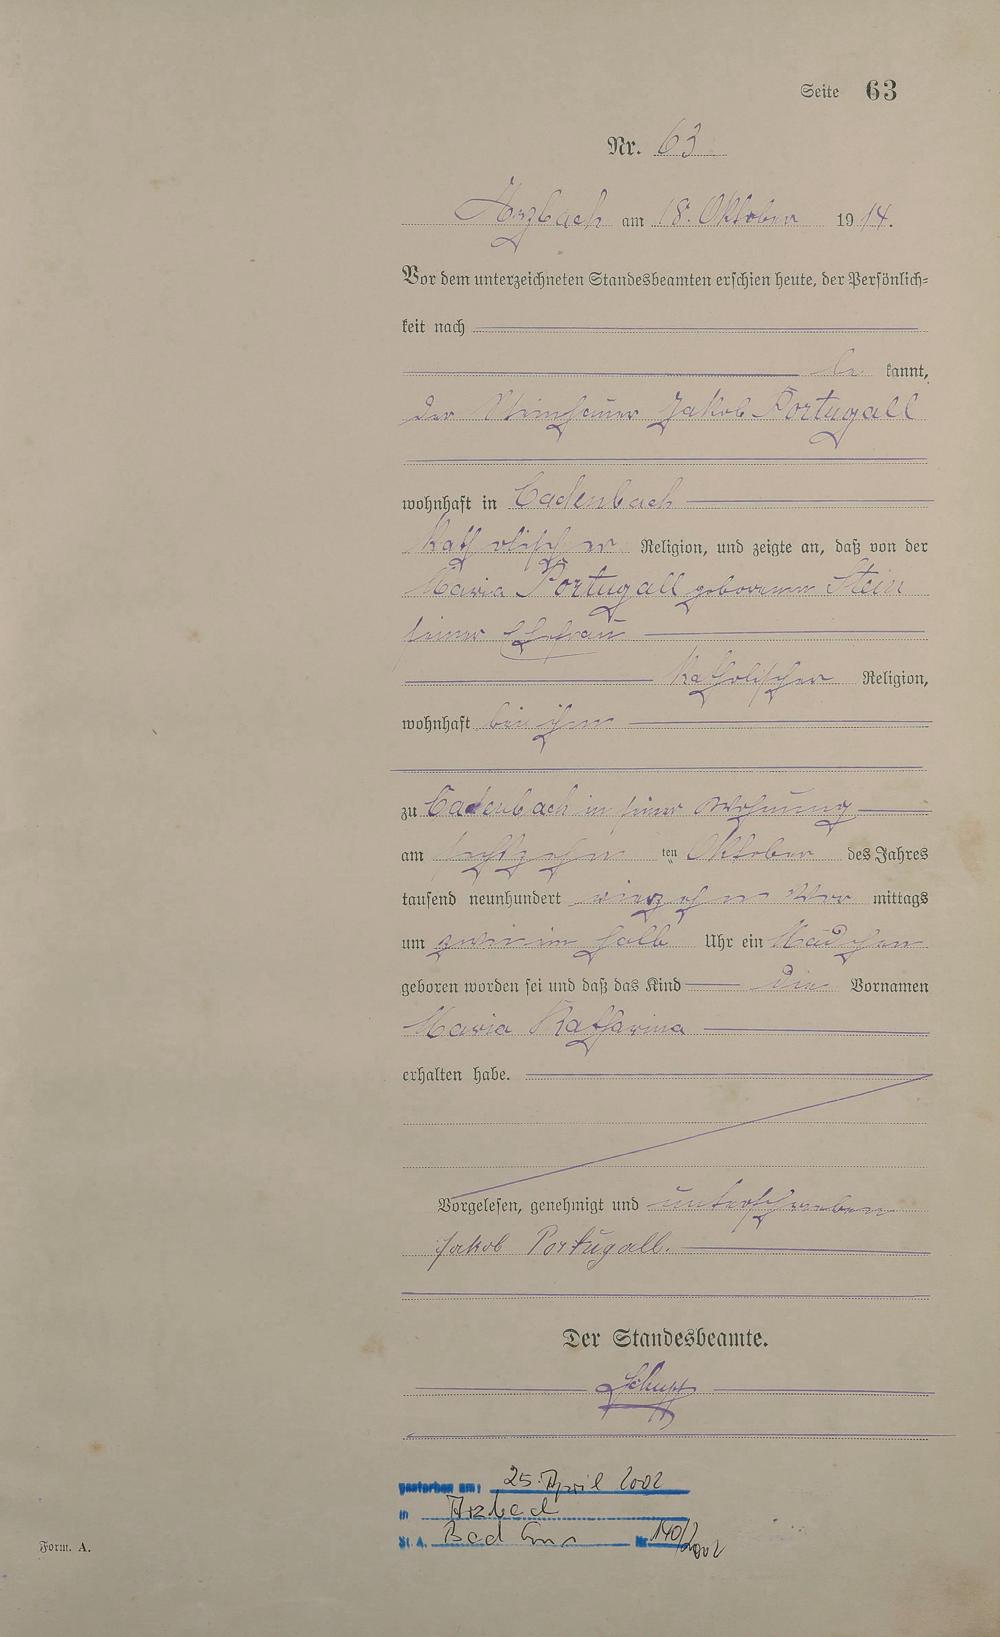 Seite 63
Nr. 63
Arzbach am 18. Oktober 1914.
Vor dem unterzeichneten Standesbeamten erschien heute, der Persönlich=
keit nach
be kannt,
der Steinhauer Jakob Portugall
wohnhaft in Cadenbach
katholischer Religion, und zeigte an, daß von der
Maria Portugall geborenen Stein
seiner Ehefrau
katholischer Religion,
wohnhaft bei ihm
zu Cadenbach in seiner Wohnung
am sechszehn ten Oktober des Jahres
tausend neunhundert vierzehn Vor mittags
um zweieinhalb Uhr ein Mädchen
geboren worden sei und daß das Kind die Vornamen
Maria Katharina
erhalten habe.
Vorgelesen, genehmigt und unterschrieben
Jakob Portugall.
Der Standesbeamte.
Schupp
gestorben am: 25. April 2002
in Arzbach
St. A. Bad Ems Nr. 140/2002
Form. A.